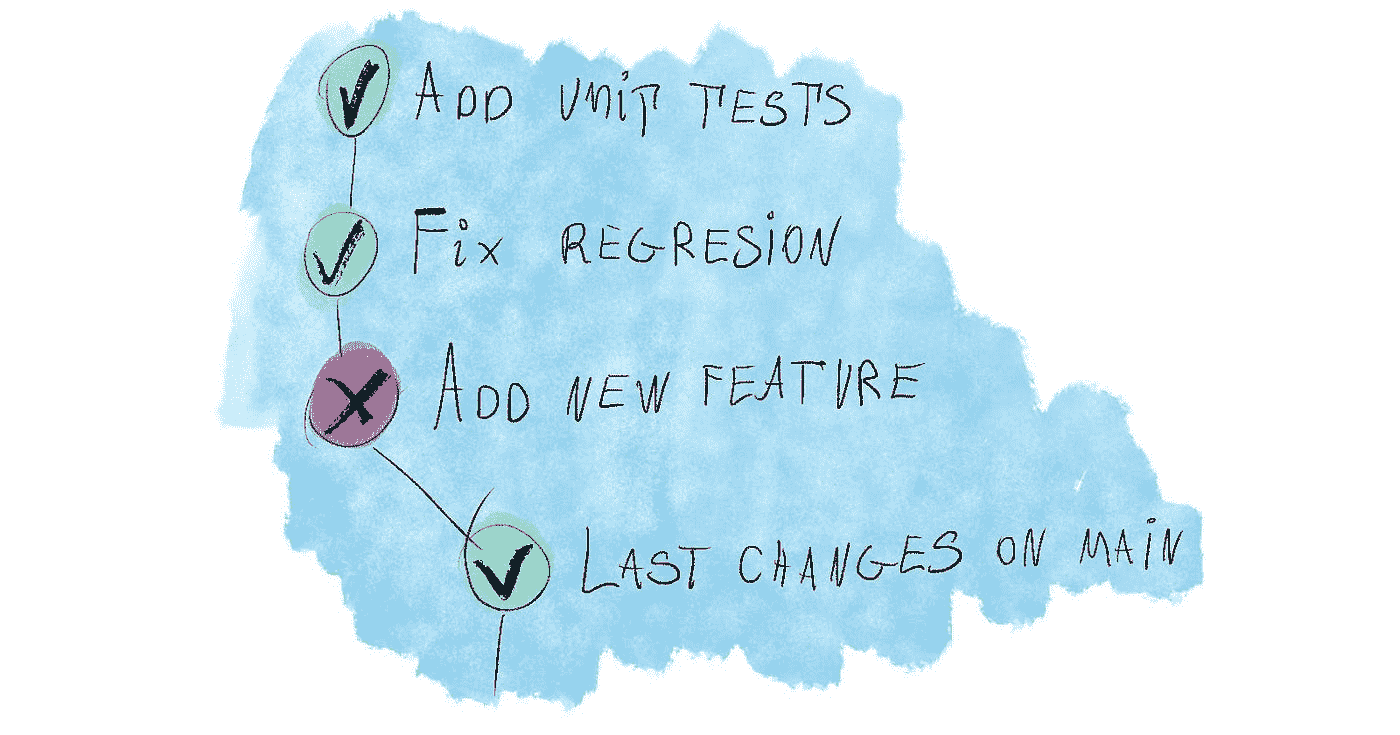 ADD UNIT TESTS
FIX REGRESION
ADD NEW FEATURE
LAST CHANGES ON MAIN